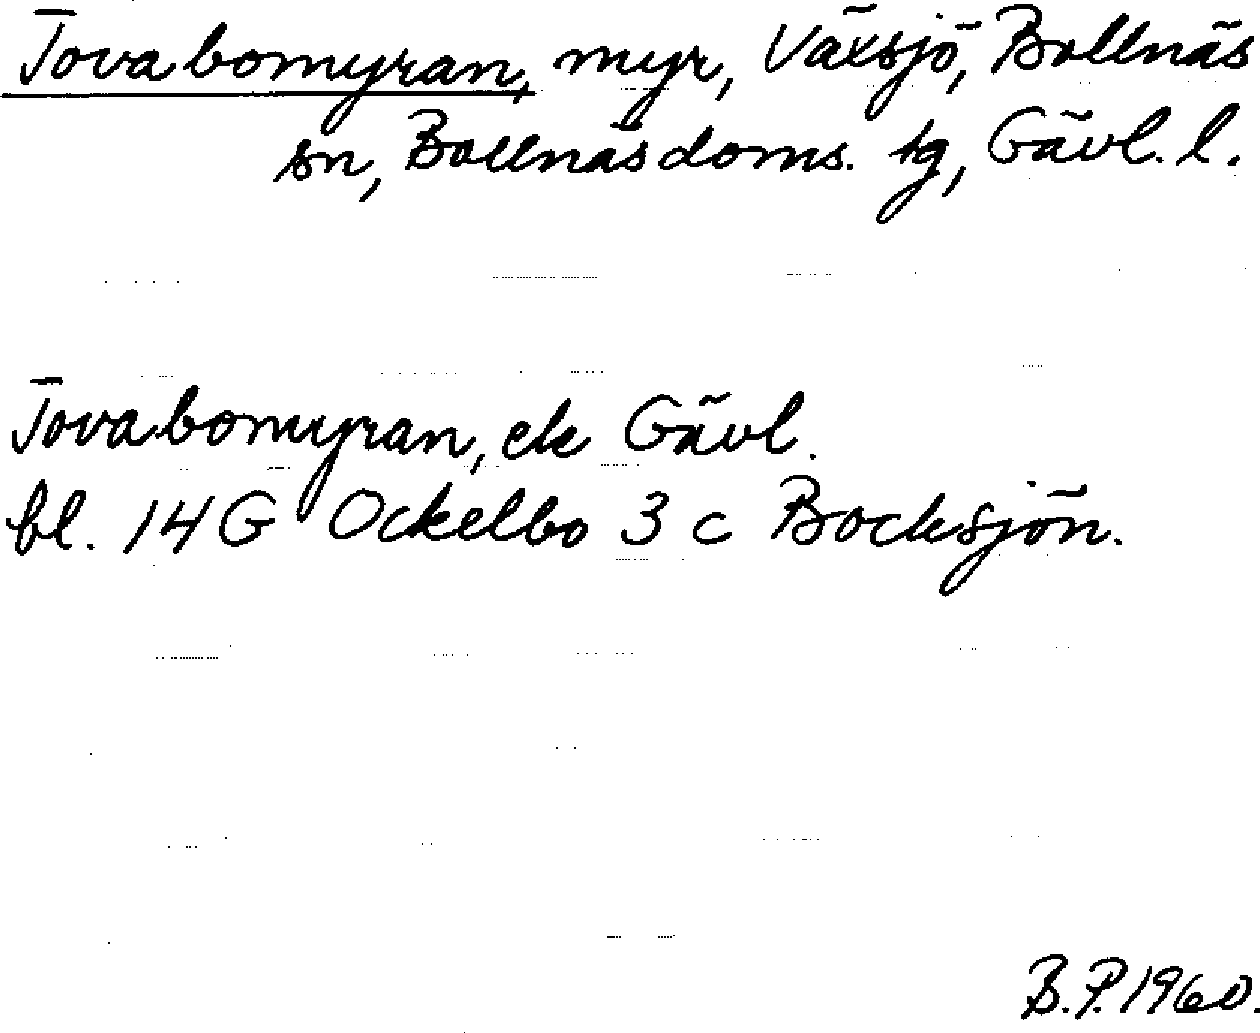 Tovabomyran, myr, Växsjö, Bollnäs
sn, Bollnäs doms. tg, Gävl. l.
Tovabomyran, ek Gävl.
bl. 14 G Ockelbo 3 c Bocksjön.
B.P. 1960.